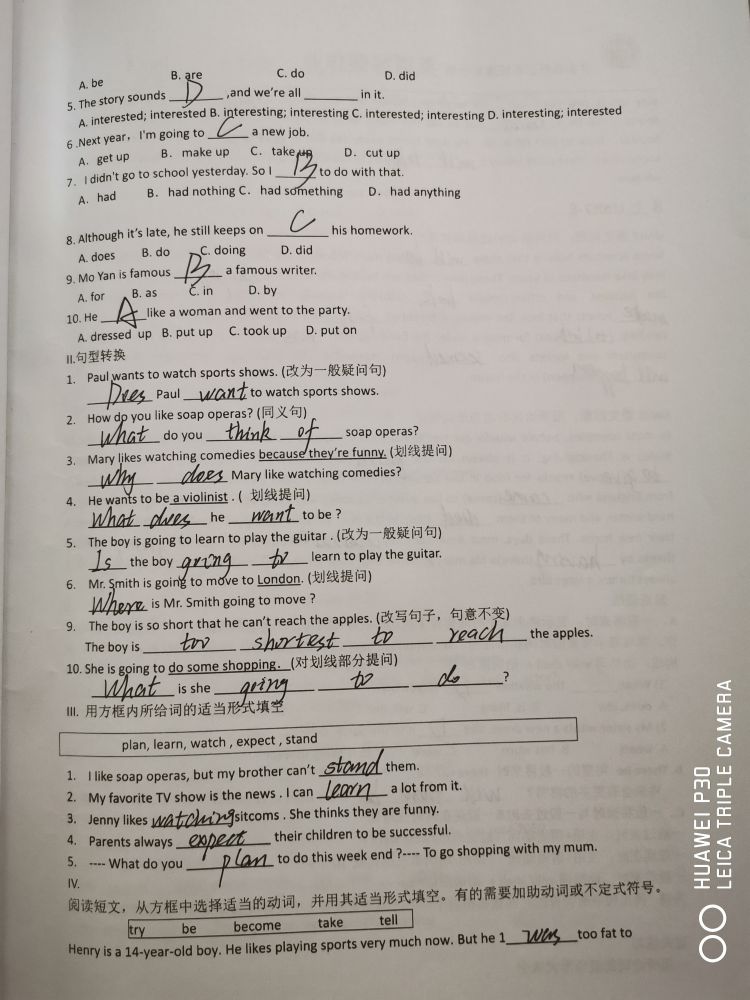 A. be B. are C. do D. did
5. The story sounds D ,and we're all ________ in it.
A. interested; interested B. interesting; interesting C. interested; interesting D. interesting; interested
6 .Next year, I'm going to C a new job.
A. get up B. make up C. take up D. cut up
7. I didn't go to school yesterday. So I B to do with that.
A. had B. had nothing C. had something D. had anything
8. Although it's late, he still keeps on C his homework.
A. does B. do C. doing D. did
9. Mo Yan is famous B a famous writer.
A. for B. as C. in D. by
10. He A like a woman and went to the party.
A. dressed up B. put up C. took up D. put on
II.句型转换
1. Paul wants to watch sports shows. (改为一般疑问句)
Does Paul want to watch sports shows.
2. How do you like soap operas? (同义句)
what do you think of soap operas?
3. Mary likes watching comedies because they're funny. (划线提问)
why does Mary like watching comedies?
4. He wants to be a violinist . ( 划线提问)
What does he want to be ?
5. The boy is going to learn to play the guitar . (改为一般疑问句)
Is the boy going to learn to play the guitar.
6. Mr. Smith is going to move to London. (划线提问)
Where is Mr. Smith going to move ?
9. The boy is so short that he can't reach the apples. (改写句子，句意不变)
The boy is too shortest to reach the apples.
10. She is going to do some shopping. (对划线部分提问)
What is she going to do ?
III. 用方框内所给词的适当形式填空
plan, learn, watch , expect , stand
1. I like soap operas, but my brother can't stand them.
2. My favorite TV show is the news . I can learn a lot from it.
3. Jenny likes watching sitcoms . She thinks they are funny.
4. Parents always expect their children to be successful.
5. ---- What do you plan to do this week end ?---- To go shopping with my mum.
IV.
阅读短文，从方框中选择适当的动词，并用其适当形式填空。有的需要加助动词或不定式符号。
try be become take tell
Henry is a 14-year-old boy. He likes playing sports very much now. But he 1 was too fat to
HUAWEI P30
LEICA TRIPLE CAMERA